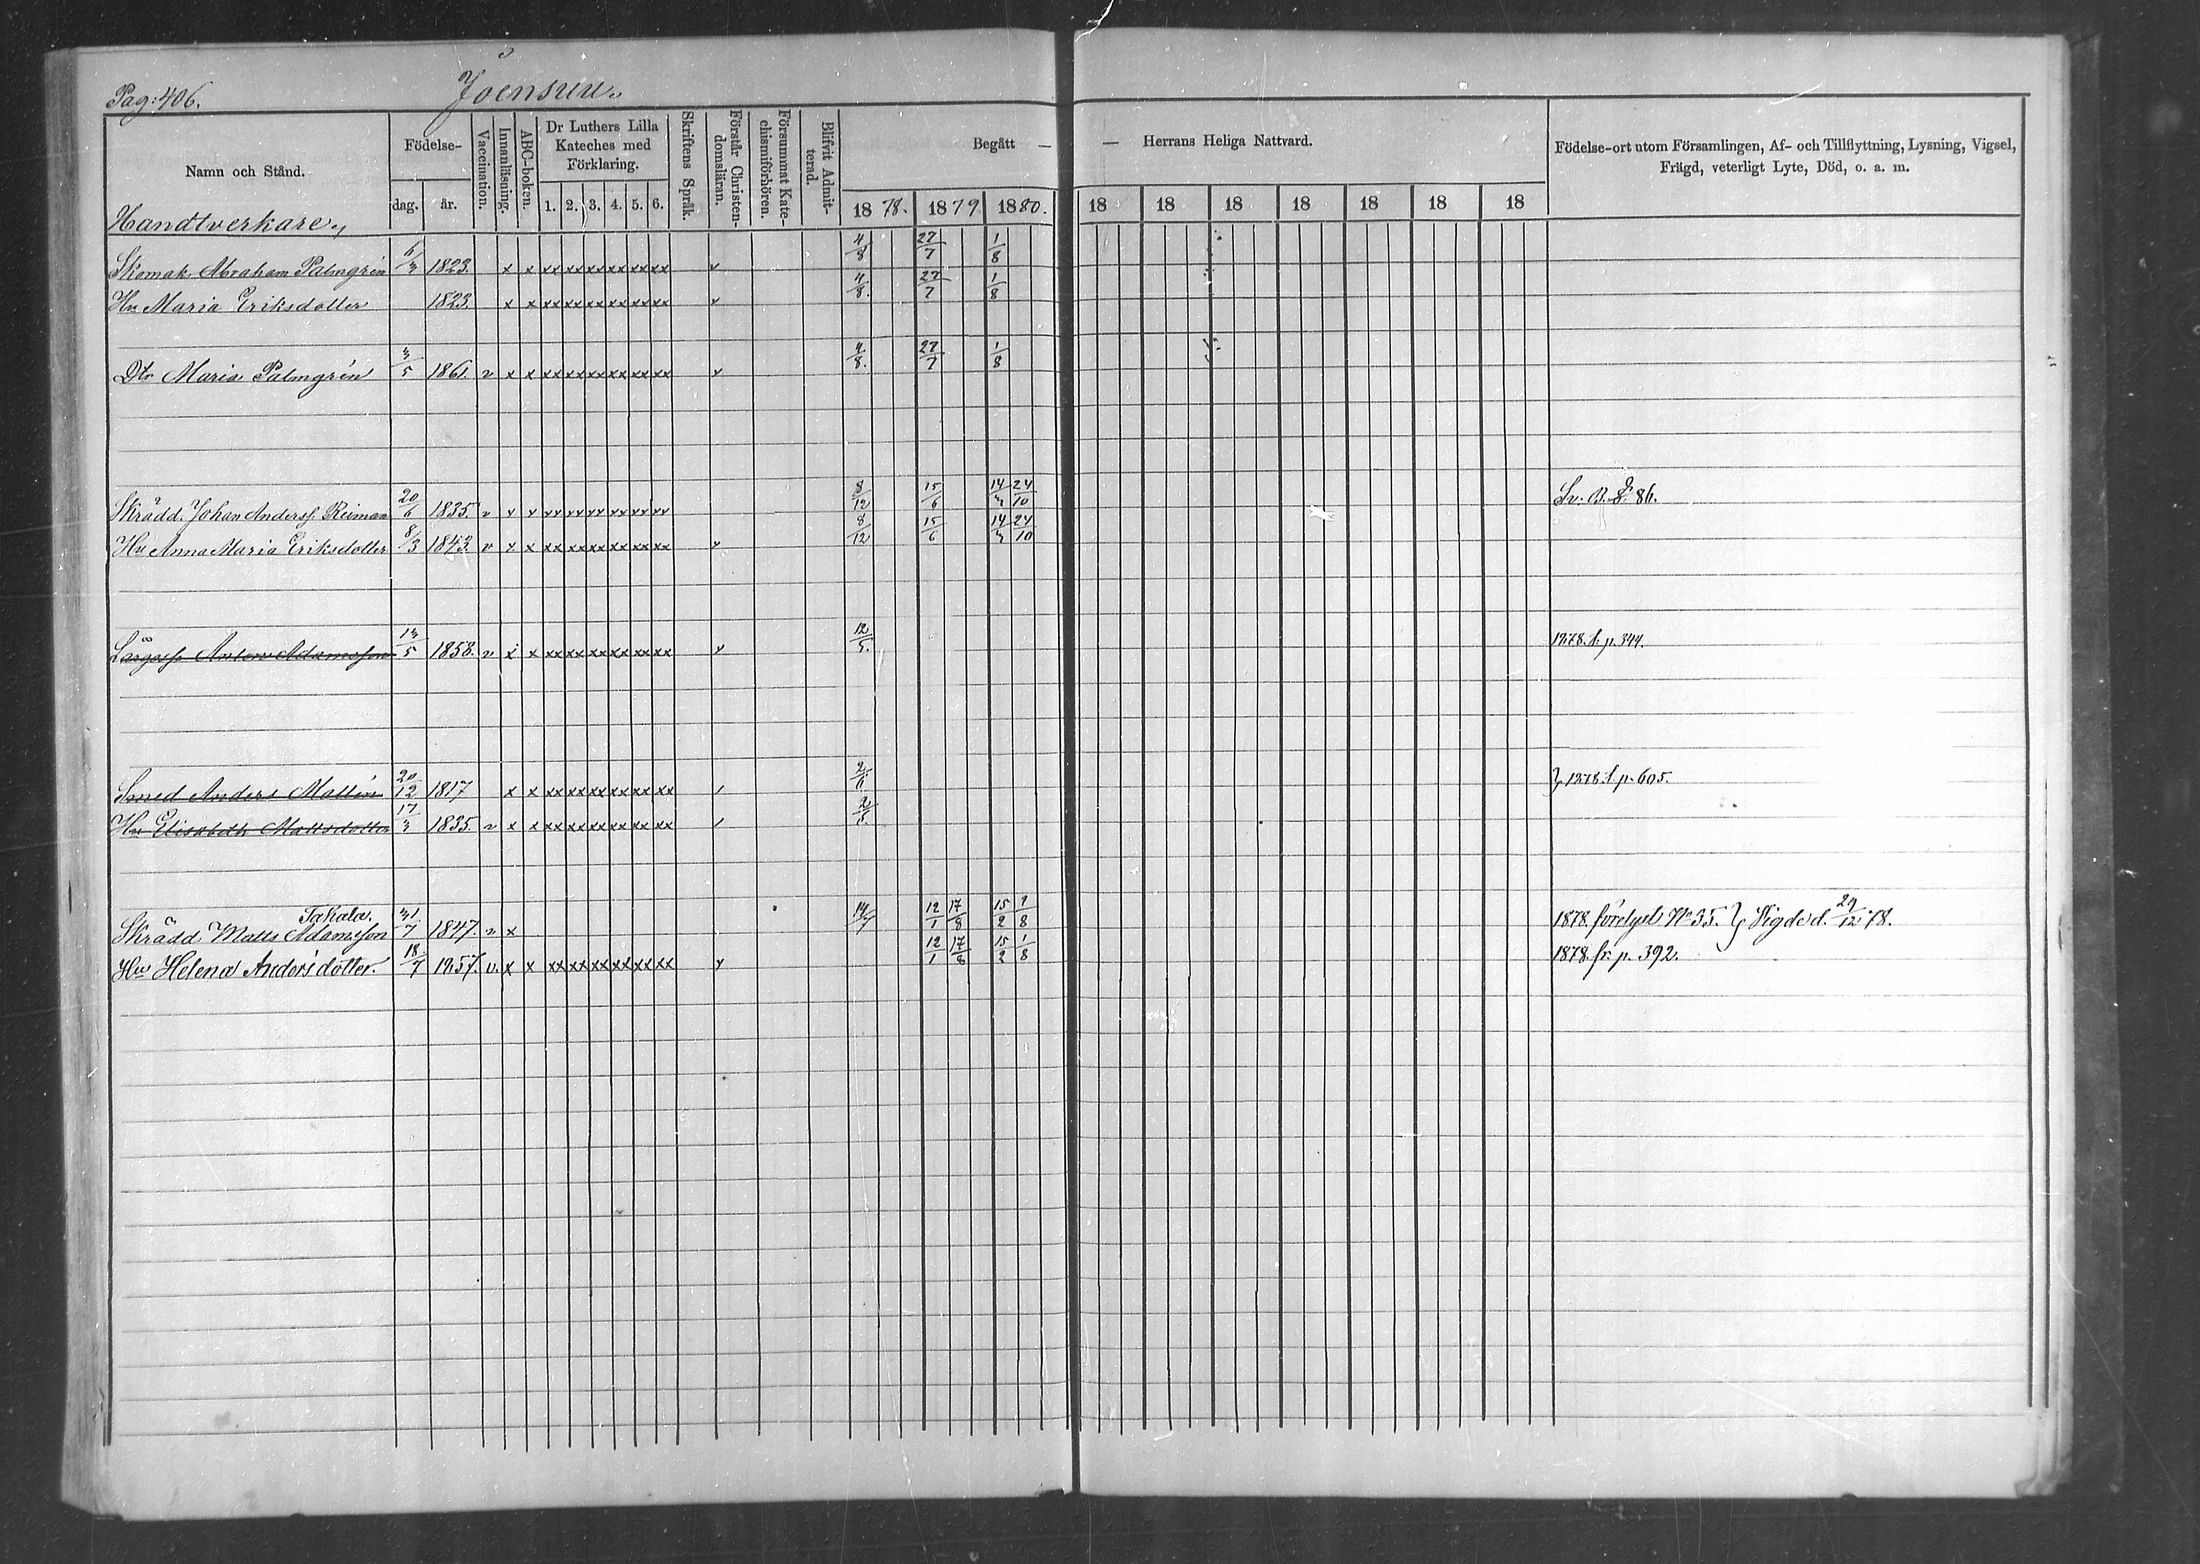 Pag: 406. Joensuu.
Namn och Stånd. Födelse- dag. år. Vaccination. Innanläsning. ABC-boken. Dr Luthers Lilla Kateches med Förklaring. 1. 2. 3. 4. 5. 6. Skriftens Språk. Förstår Christendomsläran. Försummat Katechismiförhören. Blifvit Admitterad. Begått — — Herrans Heliga Nattvard. Födelse-ort utom Församlingen, Af- och Tillflyttning, Lysning, Vigsel, Frägd, veterligt Lyte, Död, o. a. m.
1878. 1879 1880. 18 18 18 18 18 18 18
Handtverkare,
Skomak. Abraham Palmgrén 6/3 1823. x x xx xx xx xx xx xx x 4/8 27/7 1/8
Hu Maria Eriksdotter 1823. x x xx xx xx xx xx xx x 4/8. 27/7 1/8
Dtr Maria Palmgrén 3/5 1861. v x x xx xx xx xx xx xx x 4/8. 27/7 1/8
Skrädd. Johan Anderss. Reiman 20/6 1835. v x x xx xx xx xx xx xx 8/12 15/6 14/3 24/10 86.
Hu Anna Maria Eriksdotter 8/3 1843. v x x xx xx xx xx xx xx x 8/12 15/6 14/3 24/10
Adamsson 13/5 1858. v x x xx xx xx xx xx xx x 12/5. 1878. t. p. 344.
Smed Anders Mattén 20/12 1817 x x xx xx xx xx xx xx / 2/6. } 1878. t. p. 605.
Hu Elisabeth Mattsdotter 17/3 1835. v x x xx xx xx xx xx xx /
Takala.
Skrädd. Matts Adamsson 31/7 1847. v x 14/7 12/1 17/8 15/2 1/8 1878. No 35. } Vigde d. 29/12 78.
Hu Helena Andersdotter. 18/7 1857. v. x x xx xx xx xx xx xx x 12/1 17/8 15/2 1/8 1878. fr. p. 392.